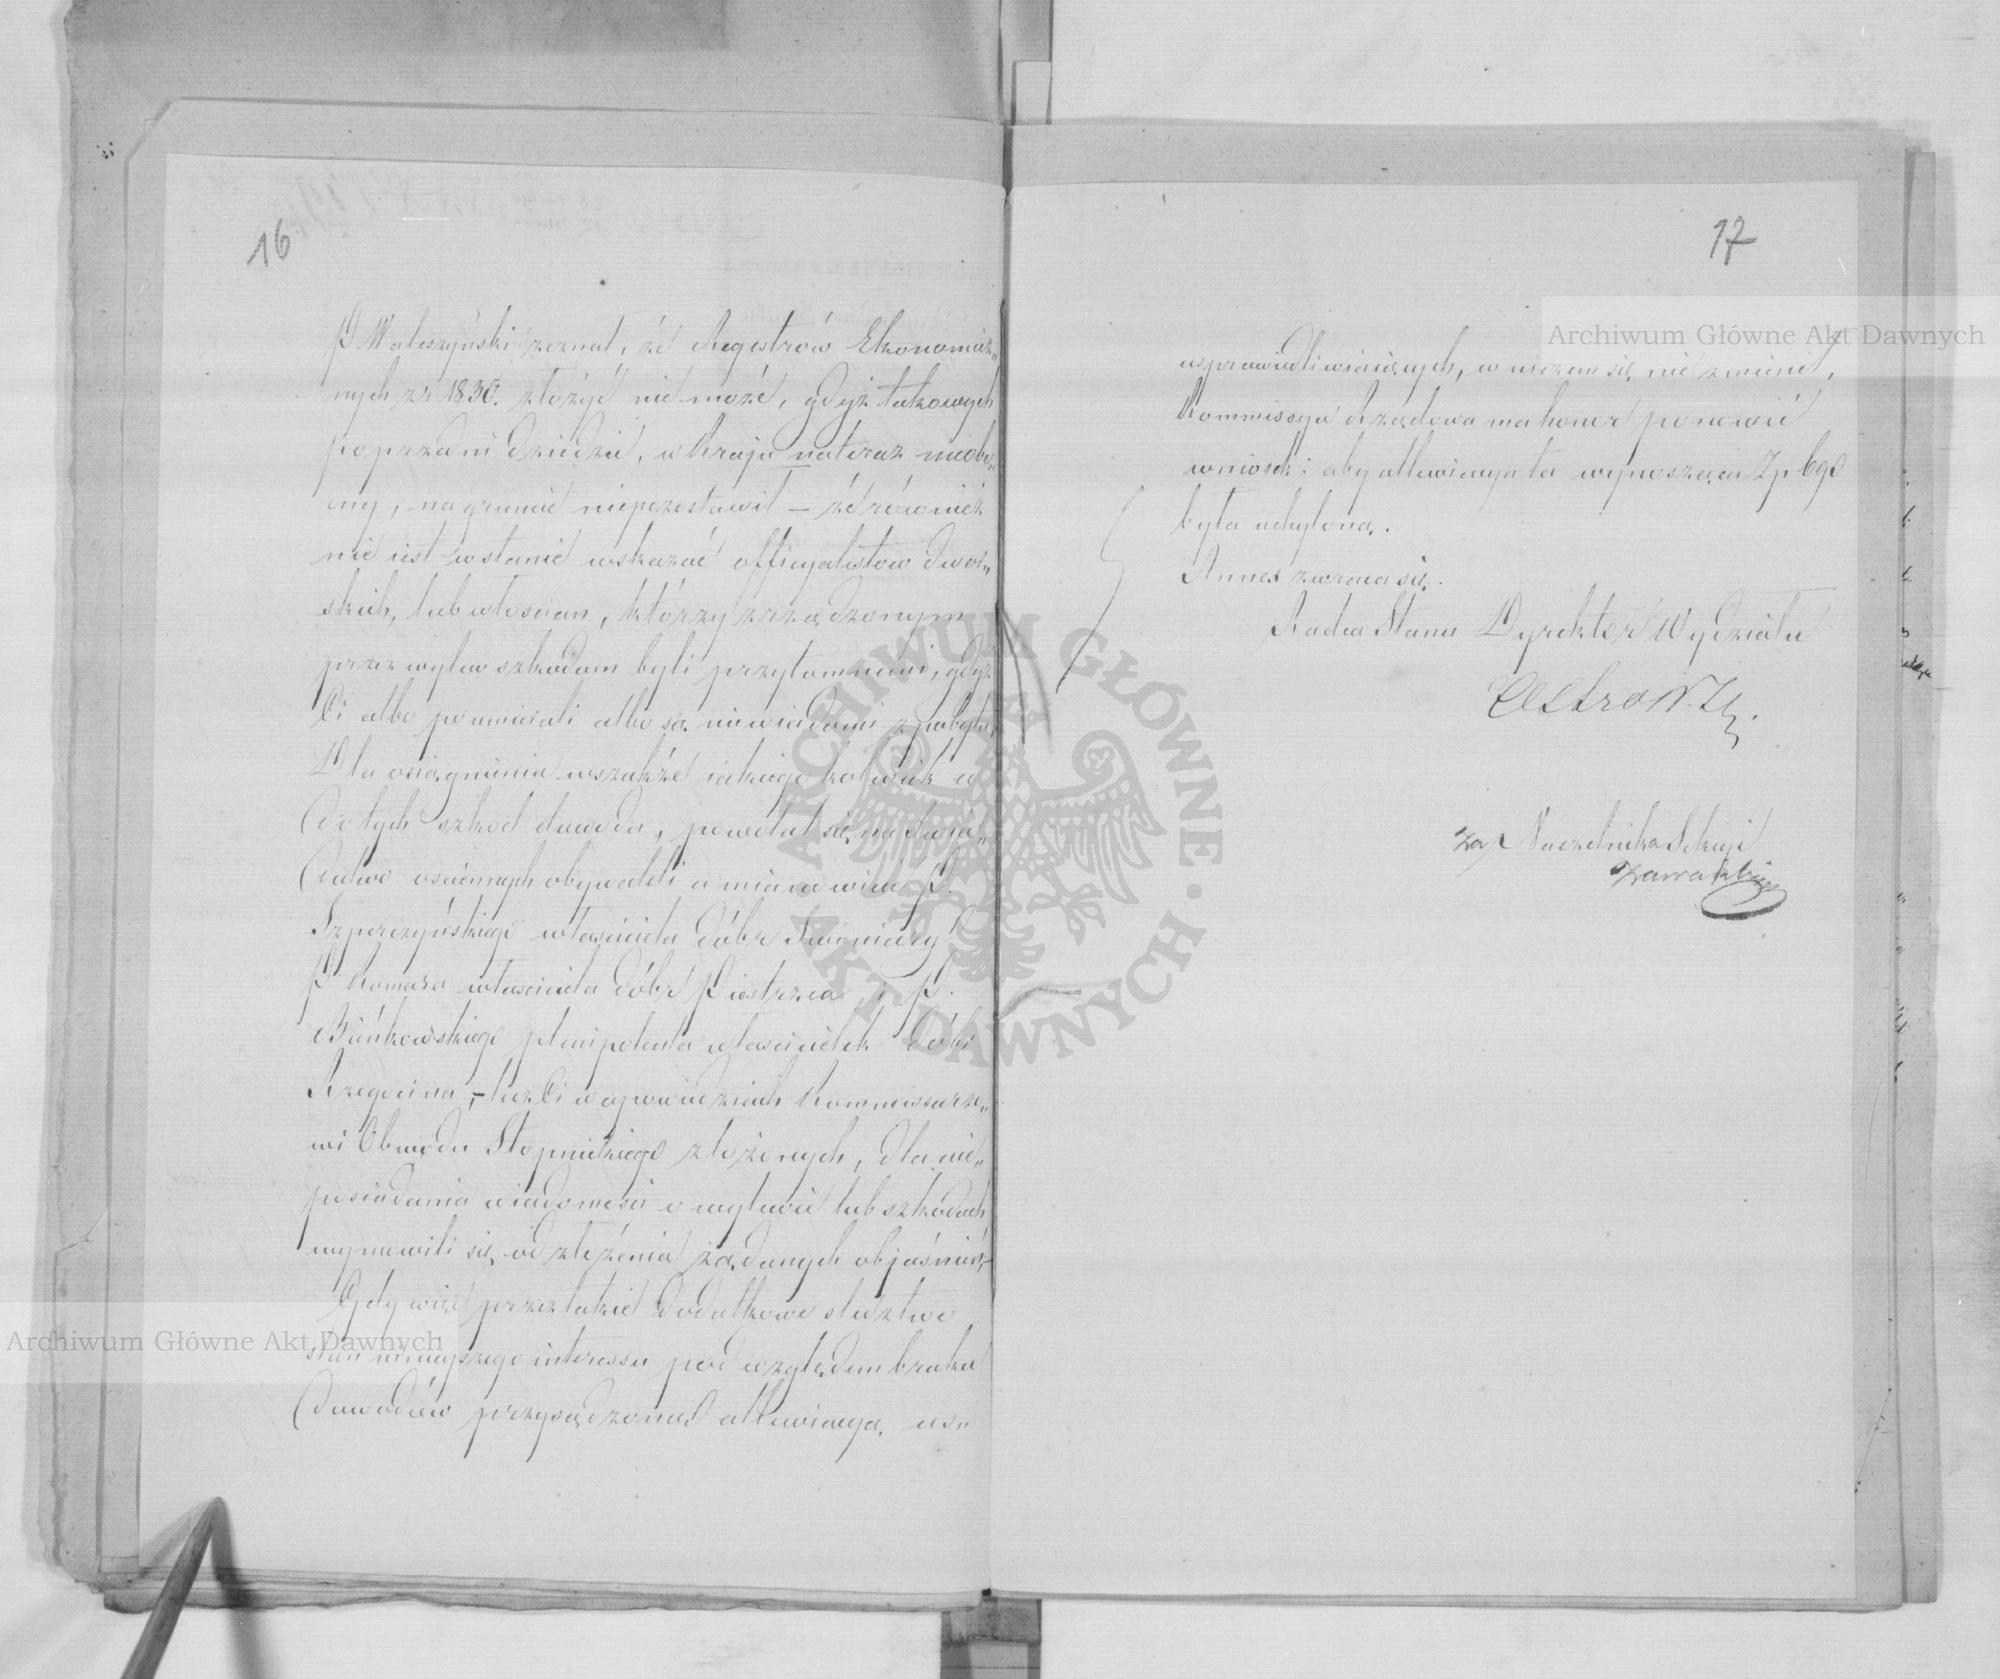 16
P. Waleszyński zeznał, że Regestrów Ekonomicz„
nych z r. 1830. złożyć nie może, gdyż takowych
poprzedni dziedzic, w kraju na teraz nieobe„
cny, na gruncie niepozostawił – że również
nie iest w stanie wskazać officyalistów dwor„
skich, lub włościan, którzy zrządzonym
przez wylew szkodom byli przytomnemi, gdyż
Ci albo poumierali albo są niewiadomi z pobytu,
Dla osiągnienia wszakże iakiego kolwiek w
do tych szkod dowodu, powołał się na świa„
dectwo ościennych obywateli a mianowicie P.
Szperczyńskiego właściciela dóbr Swiniary
P. Komara właściciela dóbr Piestrzca i P.
Bieńkowskiego plenipotenta właścicielek dóbr
Rzegocina, – lecz Ci w opowiedziach Kommissarzo„
wi Obwodu Stopnickiego złożonych, dla nie„
posiadania wiadomości o wylewie lub szkodach,
wymowili się od złożenia żądanych objaśnień, –
Gdy więc przez takie dodatkowe śledztwo
stan ninieyszego interessu pod względem braku
dowodów przysądzoną allewiacyą us„
17
usprawiedliwiaiących, w niczem się nie zmienił,
Kommissya Rządowa ma honor ponowić
wniosek: aby allewiacya ta wynosząca Zp 696
była uchyloną.
Annex zwraca się.
Radca Stanu Dyrektor Wydziału
za Naczelnika Sekcyi
Archiwum Główne Akt Dawnych
Archiwum Główne Akt Dawnych
· ARCHIWUM GŁÓWNE · AKT DAWNYCH